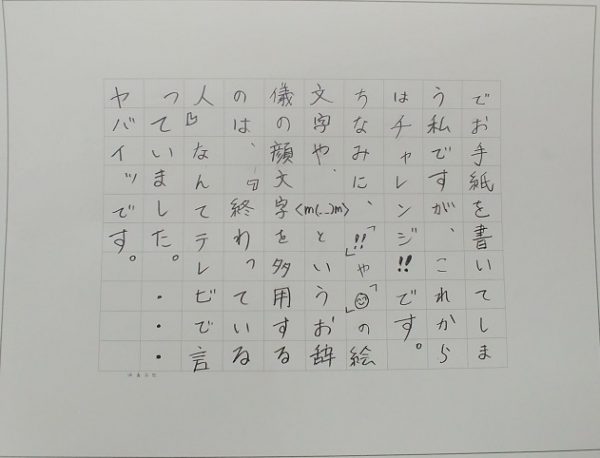 でお手紙を書いてしま
う私ですが、これから
はチャレンジ!!です。
ちなみに、「!!」や「☺」の絵
文字や、<m(..)m>というお辞
儀の顔文字を多用する
のは、『終わっている
人』なんてテレビで言
っていました。・・・
ヤバイッです。